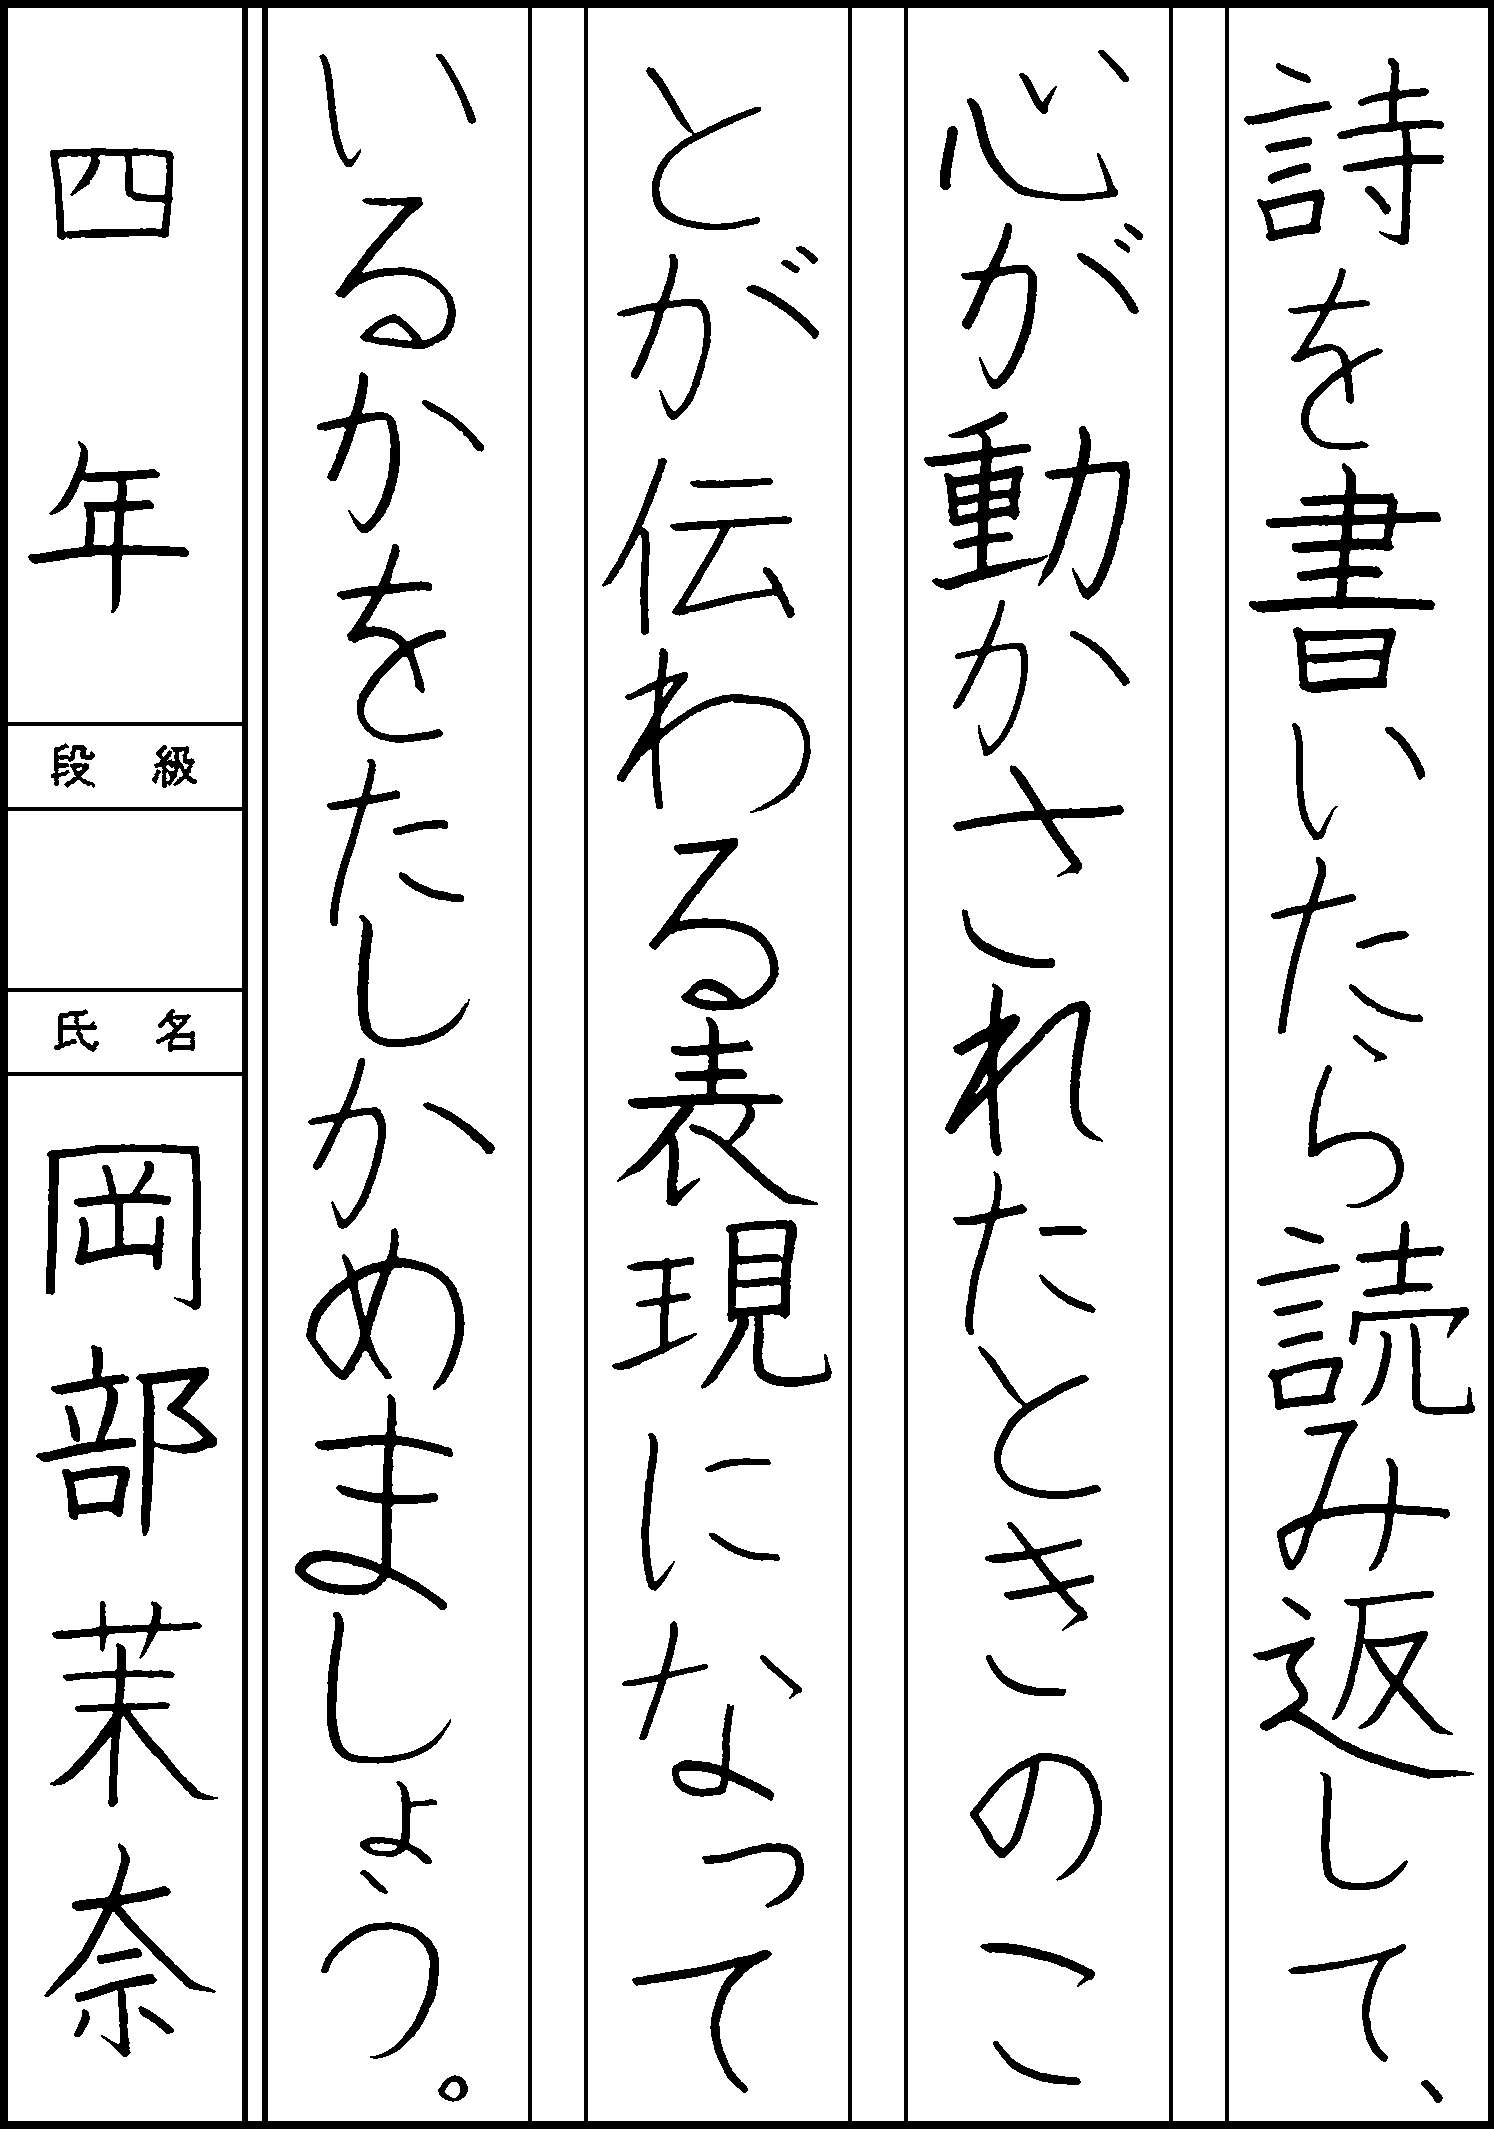 詩を書いたら読み返して、
心が動かされたときのこ
とが伝わる表現になって
いるかをたしかめましょう。
四年
段級
氏名
岡部茉奈